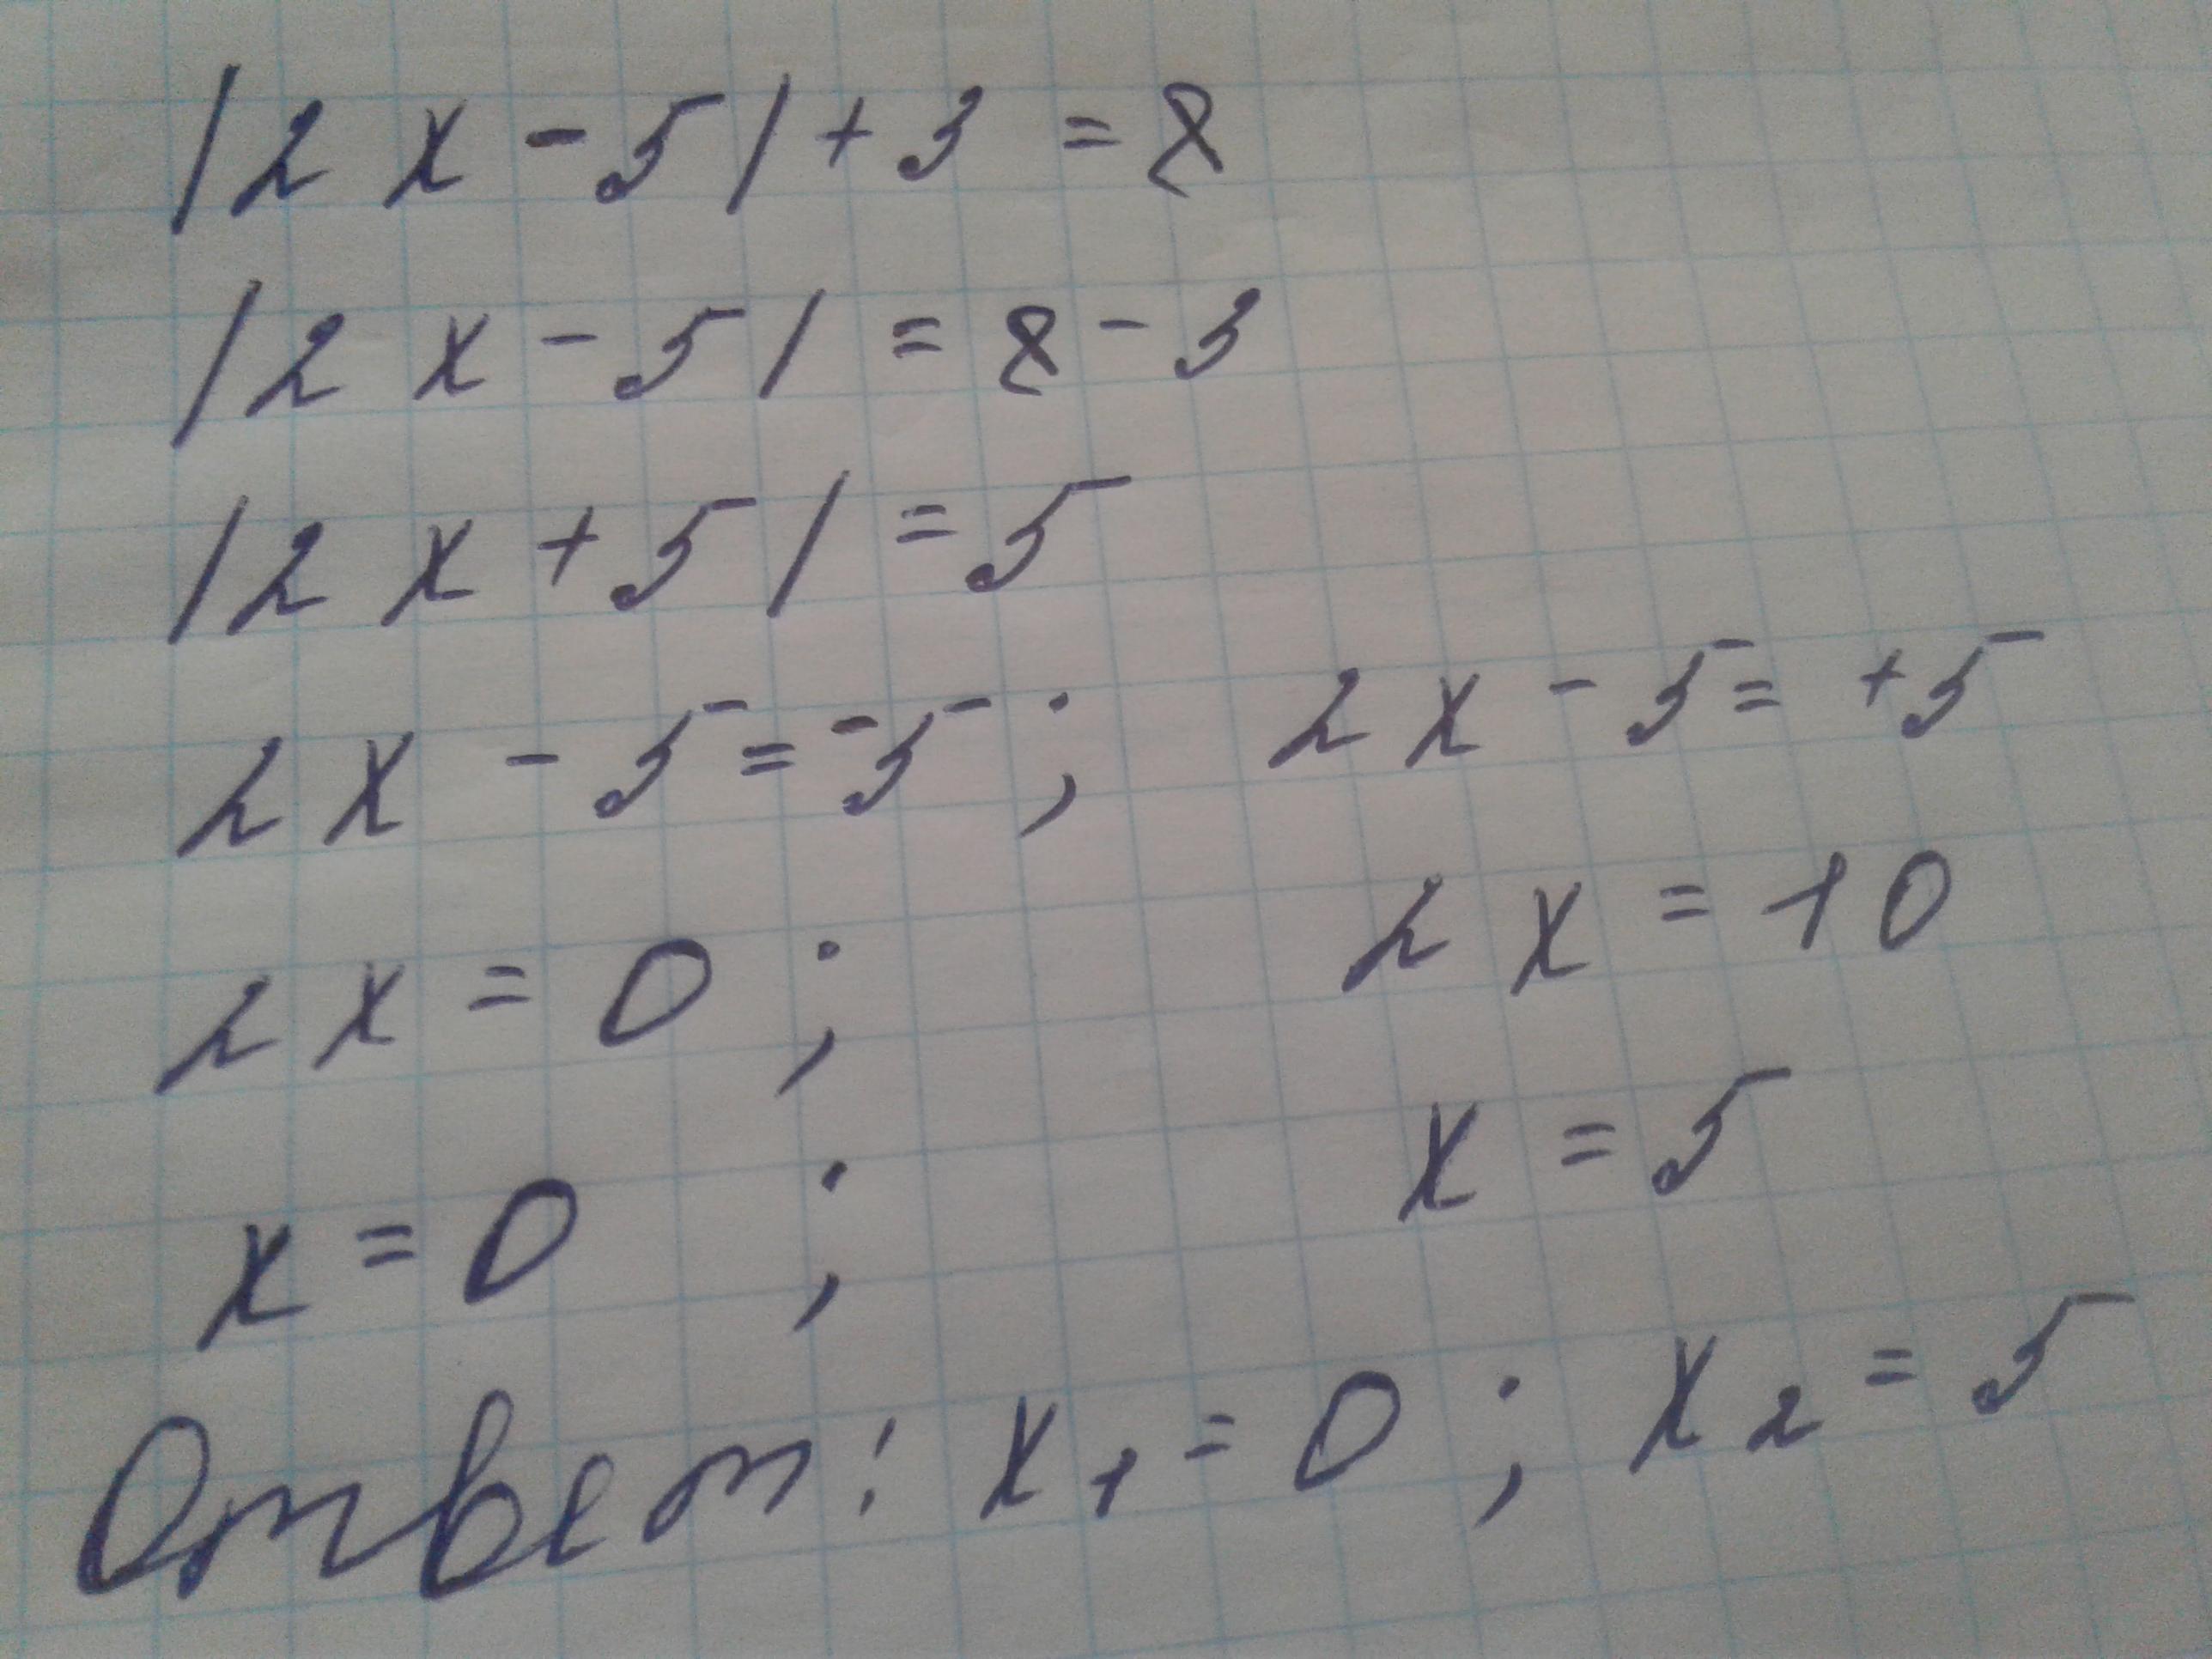 |2x - 5| + 3 = 8
|2x - 5| = 8 - 3
|2x + 5| = 5
2x - 5 = -5 ; 2x - 5 = +5
2x = 0 ; 2x = 10
x = 0 ; x = 5
Ответ: x₁ = 0 ; x₂ = 5